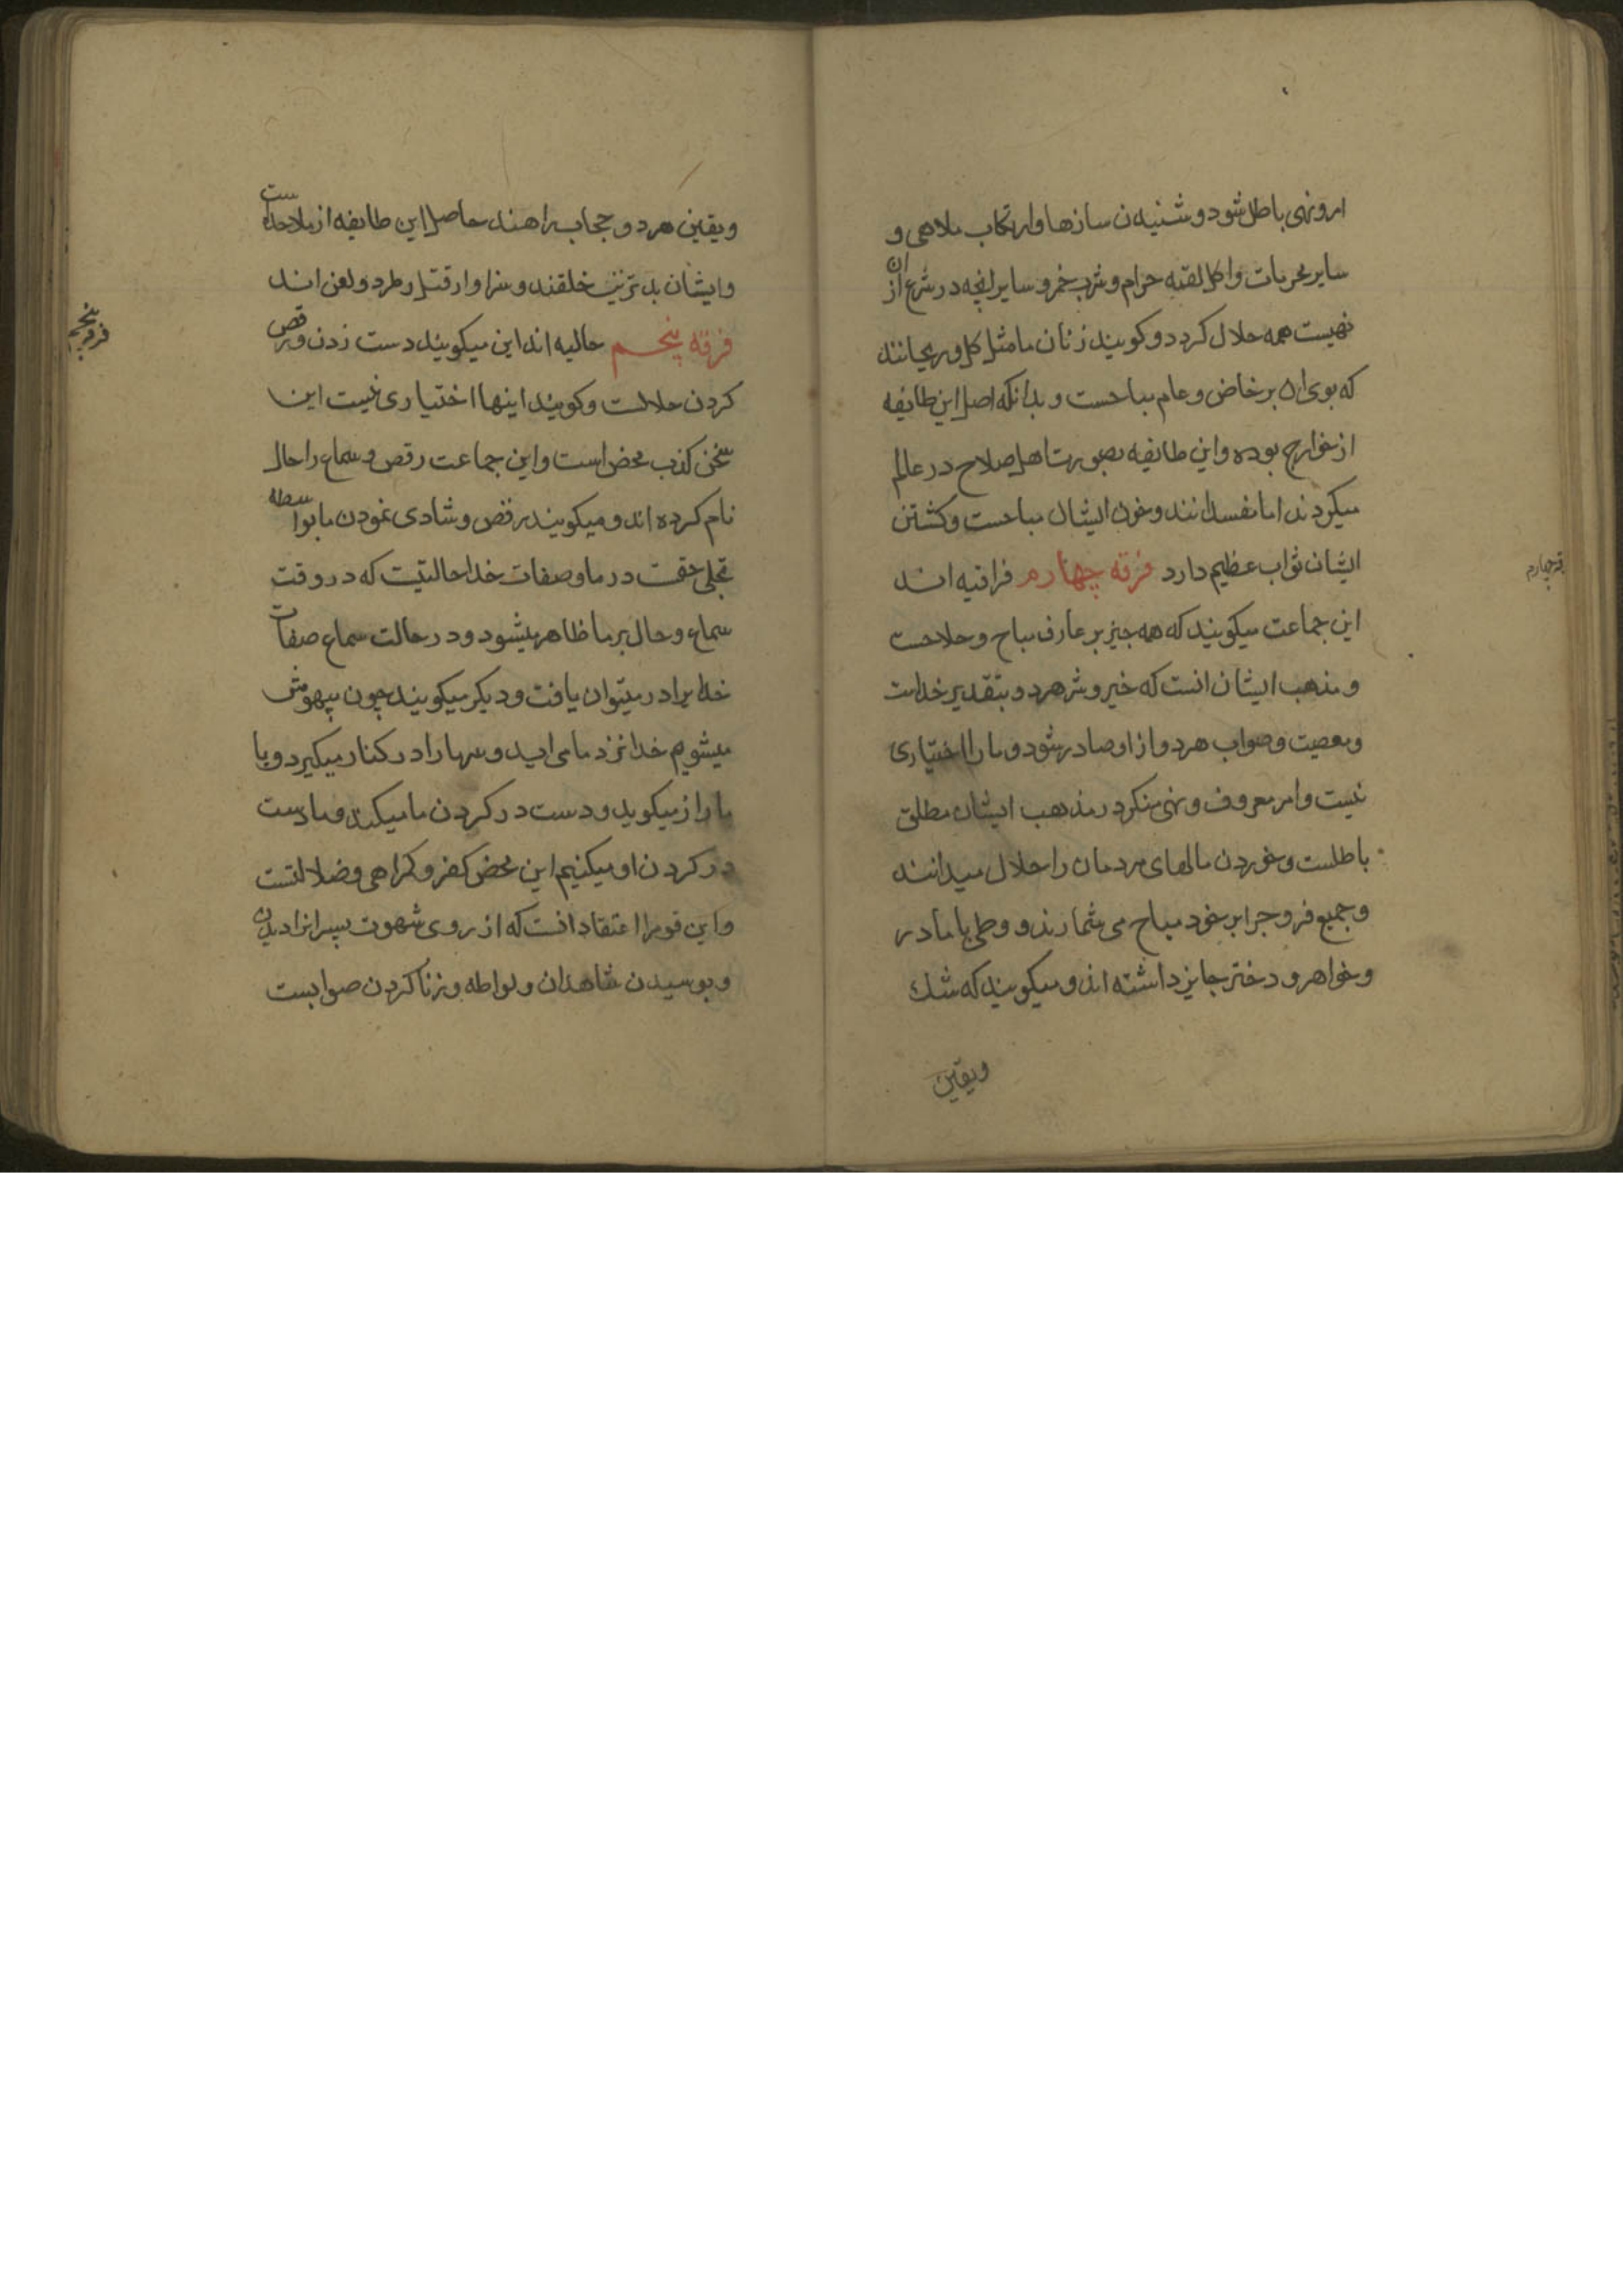 امر و نهی باطل شود و شنیدن سازها و ارتکاب ملاهی و
سایر محرمات و اکل لقمه حرام و شرب خمر و سایر انچه در شرع از ان
نهیست همه حلال کردد و کویند زنان ما مثل کل و ریحانند
که بوی ان بر خاص و عام مباحست و بدانکه اصل این طایفه
از خوارج بوده و این طایفه بصورت اهل صلاح در عالم
میکردند اما مفسدانند و خون ایشان مباحست و کشتن
ایشان ثواب عظیم دارد فرقه چهارم فراقیه اند
این جماعت میکویند که همه چیز بر عارف مباح و حلالست
و مذهب ایشان انست که خیر و شر هر دو بتقدیر خداست
و معصیت و صواب هر دو از او صادر شود و ما را اختیاری
نیست و امر معروف و نهی منکر در مذهب ایشان مطلق
باطلست و خوردن مالهای مردمان را حلال میدانند
و جمیع فروج را بر خود مباح می شمارند و وطی با مادر
و خواهر و دختر جایز داشته اند و میکویند که شک
ویقین
فرقه چهارم
ویقین هر دو حجاب راهند حاصل این طایفه از ملاحده ست
و ایشان بدترین خلقند و سزاوار قتل و طرد و لعن اند
فرقه پنجم حالیه اند این میکویند دست زدن و رقص
کردن حلالست و کویند اینها اختیاری نیست این
سخن کذب محض است و این جماعت رقص و سماع را حال
نام کرده اند و میکویند رقص و شادی نمودن ما بواسطه
تجلی حقست در ما و صفات خدا حالتیست که در وقت
سماع و حال بر ما ظاهر میشود و در حالت سماع صفات
خدا را در میتوان یافت و دیکر میکویند چون بیهوش
میشویم خدا نزد ما می اید و سرها را در کنار میکیرد و با
ما راز میکوید و دست در کردن ما میکند و ما دست
در کردن او میکنیم این محض کفر و کمراهی و ضلالتست
و این قوم را اعتقاد انست که از روی شهوت پسرانرا دیدن
و بوسیدن شاهدان و لواطه و زنا کردن صوابست
فرقه پنجم